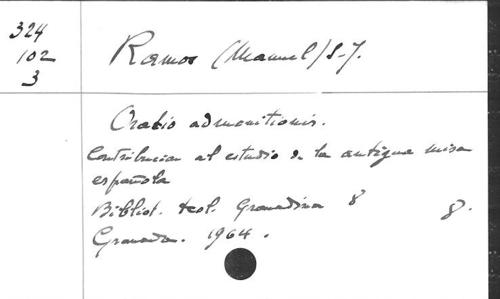 324
102
3
Ramos (Manuel) S.J.
Oratio admonitionis.
Contribucion al estudio de la antigua misa
española
Bibliot. teol. Granadina 8 8.
Granada. 1964.